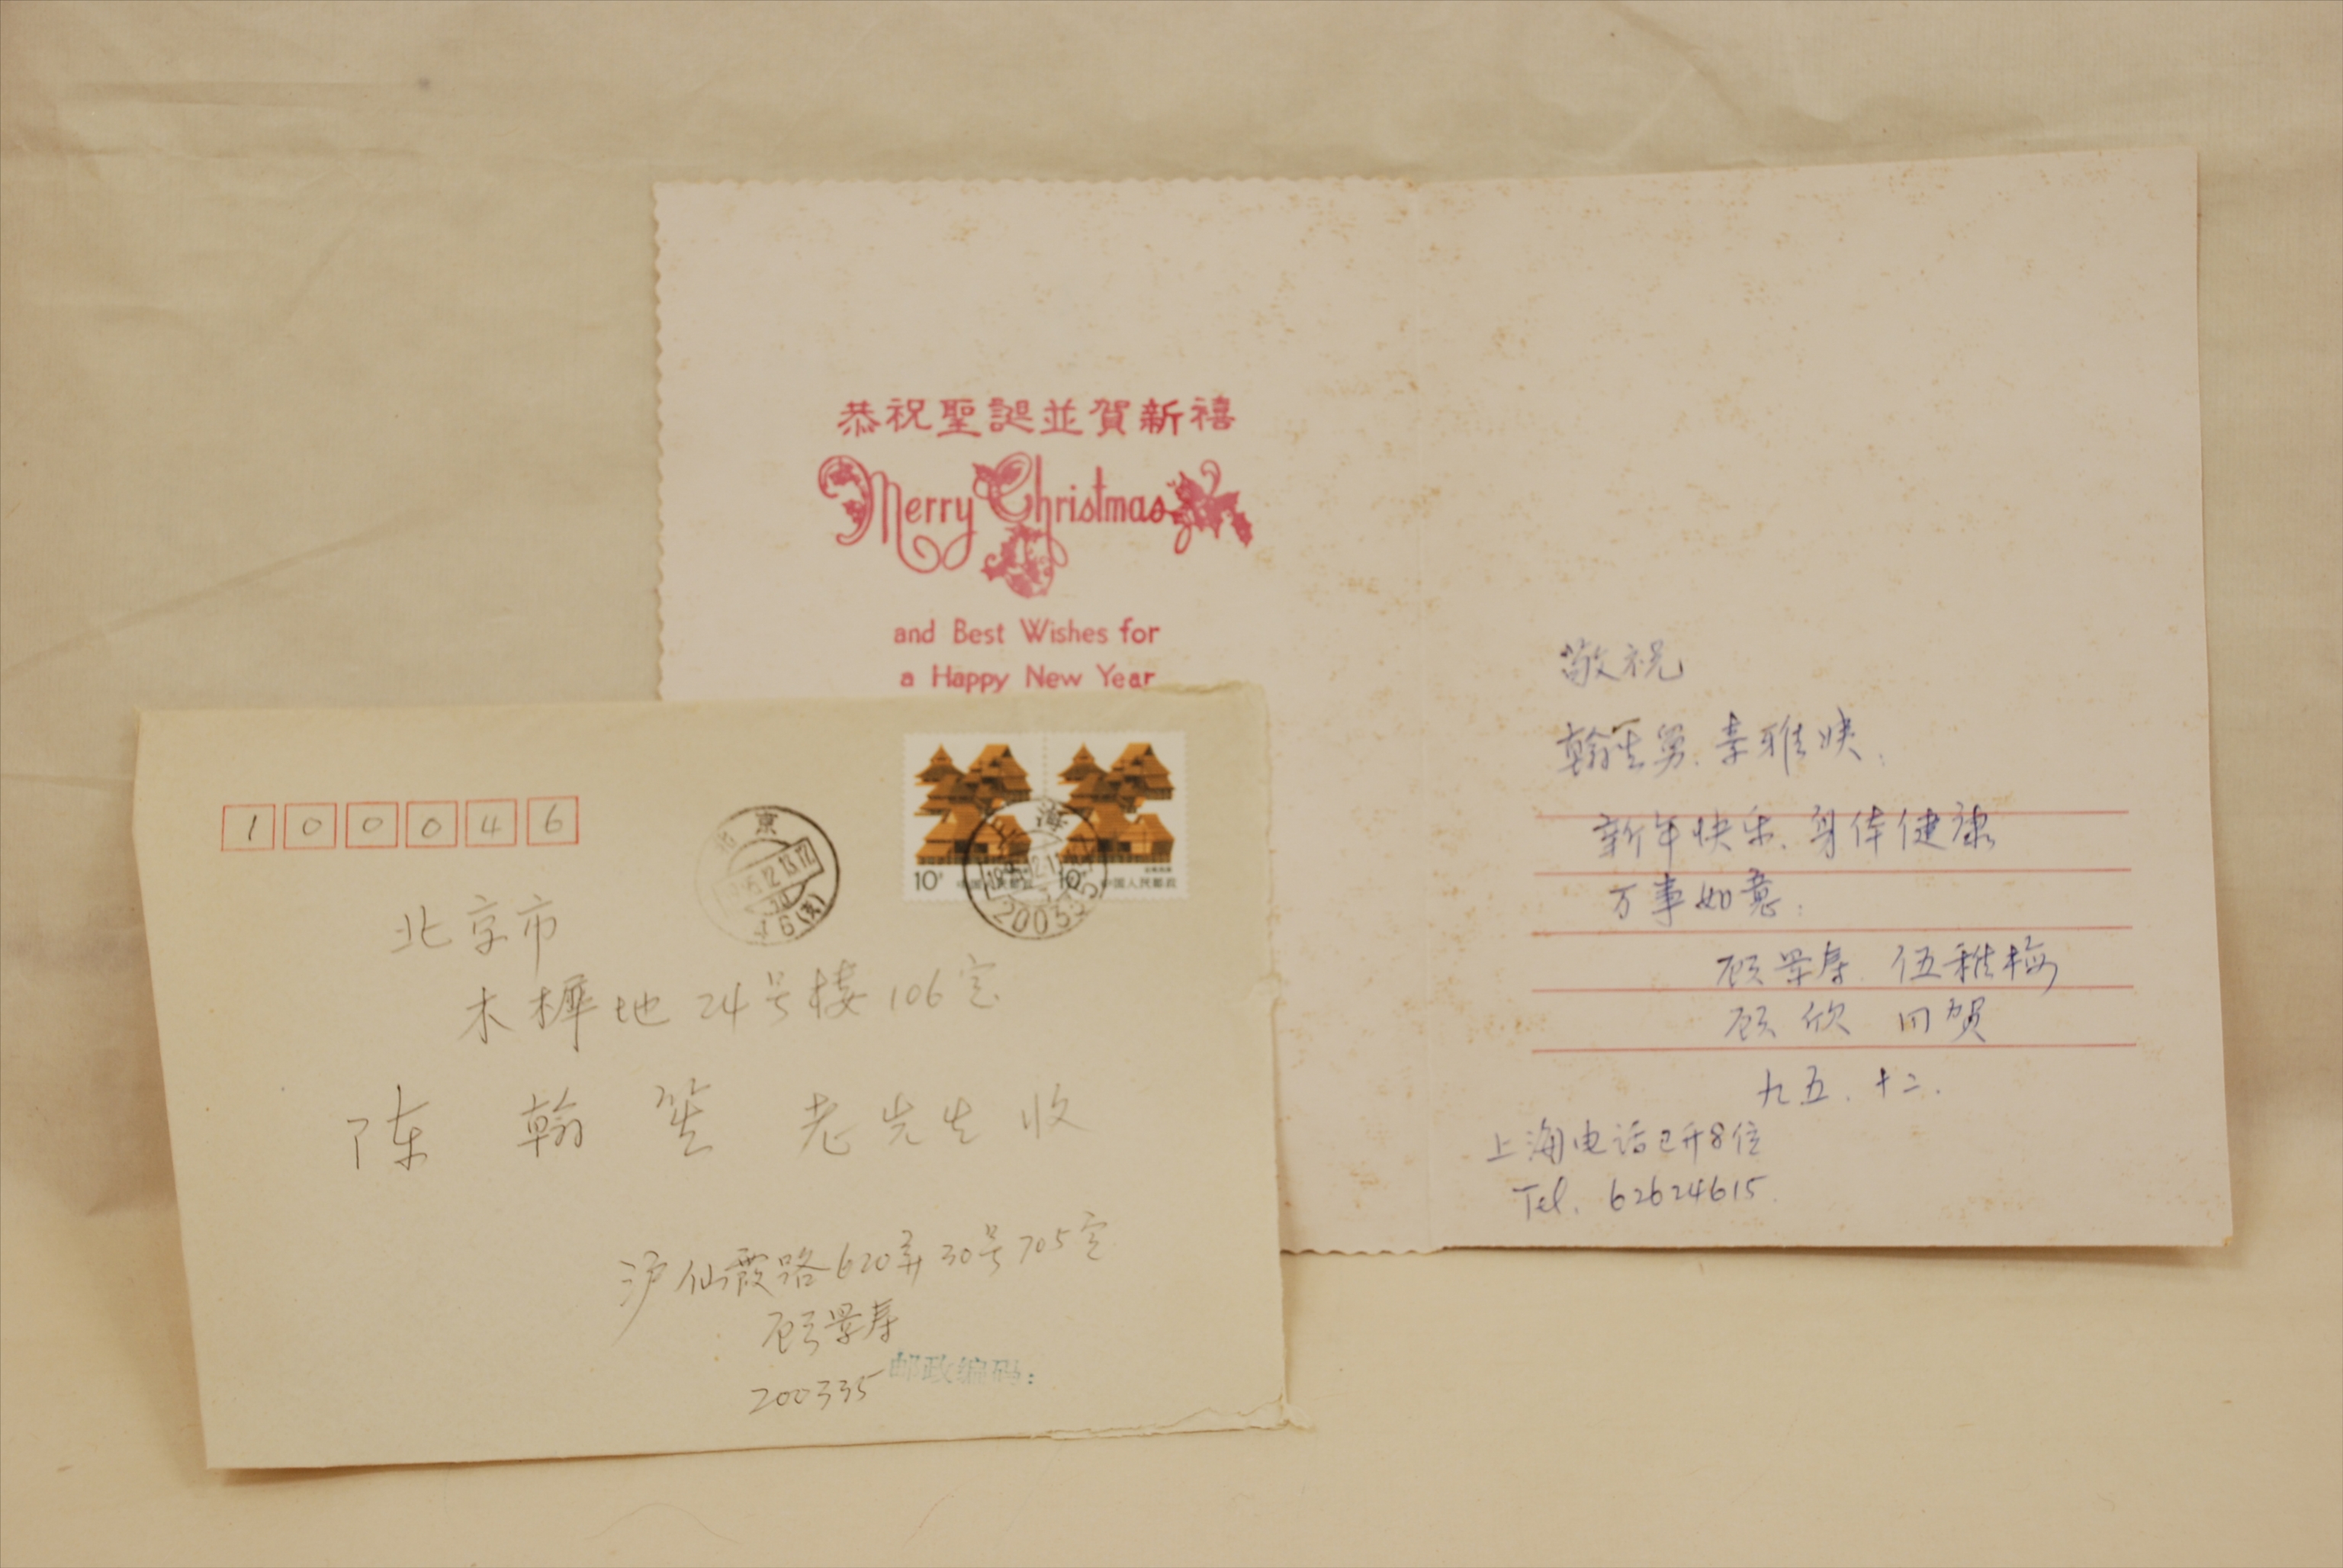 恭祝聖誕並賀新禧
Merry Christmas
and Best Wishes for
a Happy New Year
敬祝
翰笙舅、素雅姨:
新年快乐、身体健康
万事如意:
顾景寿 伍雅梅
顾欣 同贺
九五.十二.
上海电话已升8位
Tel. 62624615
100046
北京市
木樨地24号楼106室
陈翰笙老先生收
沪仙霞路620弄30号705室
顾景寿
200335 邮政编码:
10分 中国人民邮政
10分 中国人民邮政
北京
上海
200335